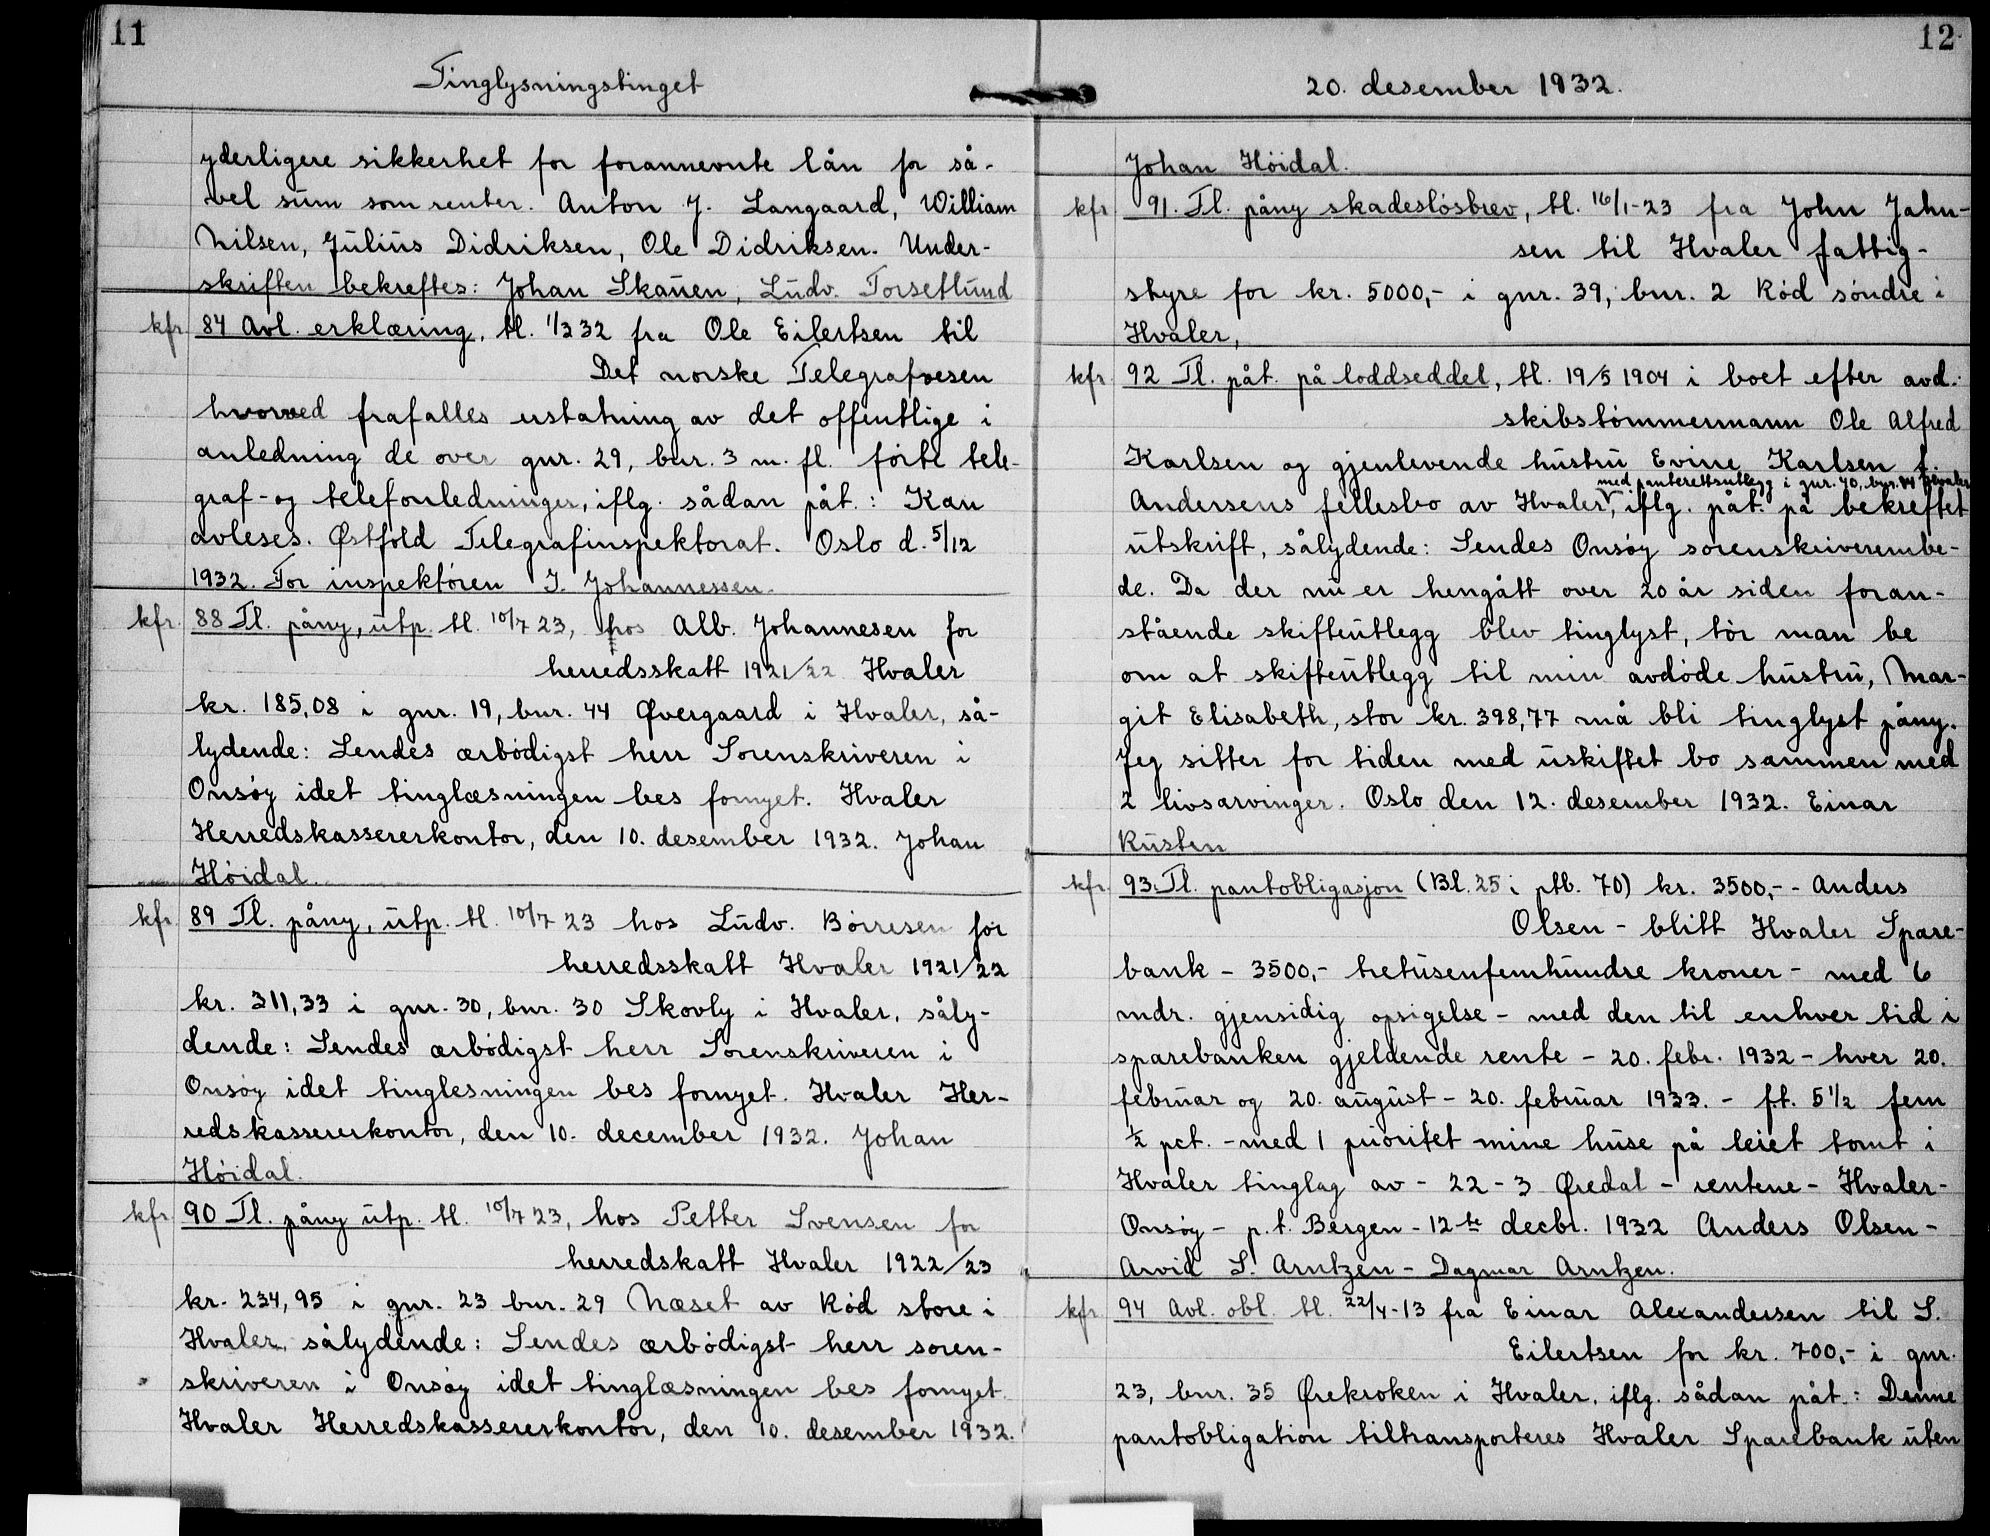 11
Tinglysningstinget
yderligere sikkerhet for forannevnte lån for så-
vel sum som renter. Anton J. Langaard, William
Nilsen, Julius Didriksen, Ole Didriksen. Under-
skriften bekreftes: Johan Skauen, Ludv. Torsetlund
kfr. 84 Avl. erklæring, tl. 1/3 32 fra Ole Eilertsen til
Det norske Telegrafvesen
hvorved frafalles erstatning av det offentlige i
anledning de over gnr. 29, bnr. 3 m. fl. förte tele-
graf- og telefonledninger, iflg. sådan påt.: Kan
avleses. Østfold Telegrafinspektorat. Oslo d. 5/12
1932. For inspektören J. Johannessen.
kfr. 88 Tl. påny, utp. tl. 10/7 23, hos Alb. Johannesen for
herredsskatt 1921/22 Hvaler
kr. 185,08 i gnr. 19, bnr. 44 Øvergaard i Hvaler, så-
lydende: Sendes ærbödigst herr Sorenskriveren i
Onsöy idet tinglæsningen bes fornyet. Hvaler
Herredskassererkontor, den 10. desember 1932. Johan
Höidal.
kfr. 89 Tl. påny, utp. tl. 10/7 23 hos Ludv. Börresen for
herredsskatt Hvaler 1921/22
kr. 311,33 i gnr. 30, bnr. 30 Skovly i Hvaler, såly-
dende: Sendes ærbödigst herr Sorenskriveren i
Onsöy idet tinglesningen bes fornyet. Hvaler Her-
redskassererkontor, den 10. december 1932. Johan
Höidal.
kfr. 90 Tl. påny utp. tl. 10/7 23, hos Petter Svensen for
herredskatt Hvaler 1922/23
kr. 234,95 i gnr. 23 bnr. 29 Næset av Röd store i
Hvaler, sålydende: Sendes ærbödigst herr soren-
skriveren i Onsöy idet tinglæsningen bes fornyet.
Hvaler Herredskassererkontor, den 10. desember 1932.
12
20. desember 1932.
Johan Höidal.
kfr. 91. Tl. påny skadeslösbrev, tl. 16/1-23 fra John Jahn-
sen til Hvaler fattig-
styre for kr. 5000,- i gnr. 39, bnr. 2 Röd söndre i
Hvaler,
kfr. 92 Tl. påt. på loddseddel, tl. 19/5 1904 i boet efter avd.:
skibstömmermann Ole Alfred
Karlsen og gjenlevende hustru Evine Karlsen f.
med panterettsutlegg i gnr. 40, bnr. 44 Hvaler
Andersens fellesbo av Hvaler, iflg. påt. på bekreftet
utskrift, sålydende: Sendes Onsöy sorenskriverembe-
de. Da der nu er hengått over 20 år siden foran-
stående skifteutlegg blev tinglyst, tör man be
om at skifteutlegg til min avdöde hustru, Mar-
git Elisabeth, stor kr. 398,77 må bli tinglyst påny.
Jeg sitter for tiden med uskiftet bo sammen med
2 livsarvinger. Oslo den 12. desember 1932. Einar
Kusten
kfr. 93. Tl. pantobligasjon (Bl. 25 i ptb. 70) kr. 3500,- - Anders
Olsen - blitt Hvaler Spare-
bank - 3500,- tretusenfemhundre kroner - med 6
mdr. gjensidig opsigelse - med den til enhver tid i
sparebanken gjeldende rente - 20. febr. 1932 - hver 20.
februar og 20. august - 20. februar 1933. - f.t. 5 1/2 fem
1/2 pct. - med 1 prioritet mine huse på leiet tomt i
Hvaler tinglag av - 22 - 3 Øredal - rentene - Hvaler -
Onsöy - p.t. Bergen - 12te decbr. 1932 Anders Olsen -
Arvid S. Arntzen - Dagmar Arntzen.
kfr. 94 Avl. obl. tl. 22/4-13 fra Einar Alexandersen til S.
Eilertsen for kr. 700,- i gnr.
23, bnr. 35 Ørekroken i Hvaler, iflg. sådan påt.: Denne
pantobligation tiltransporteres Hvaler Sparebank uten